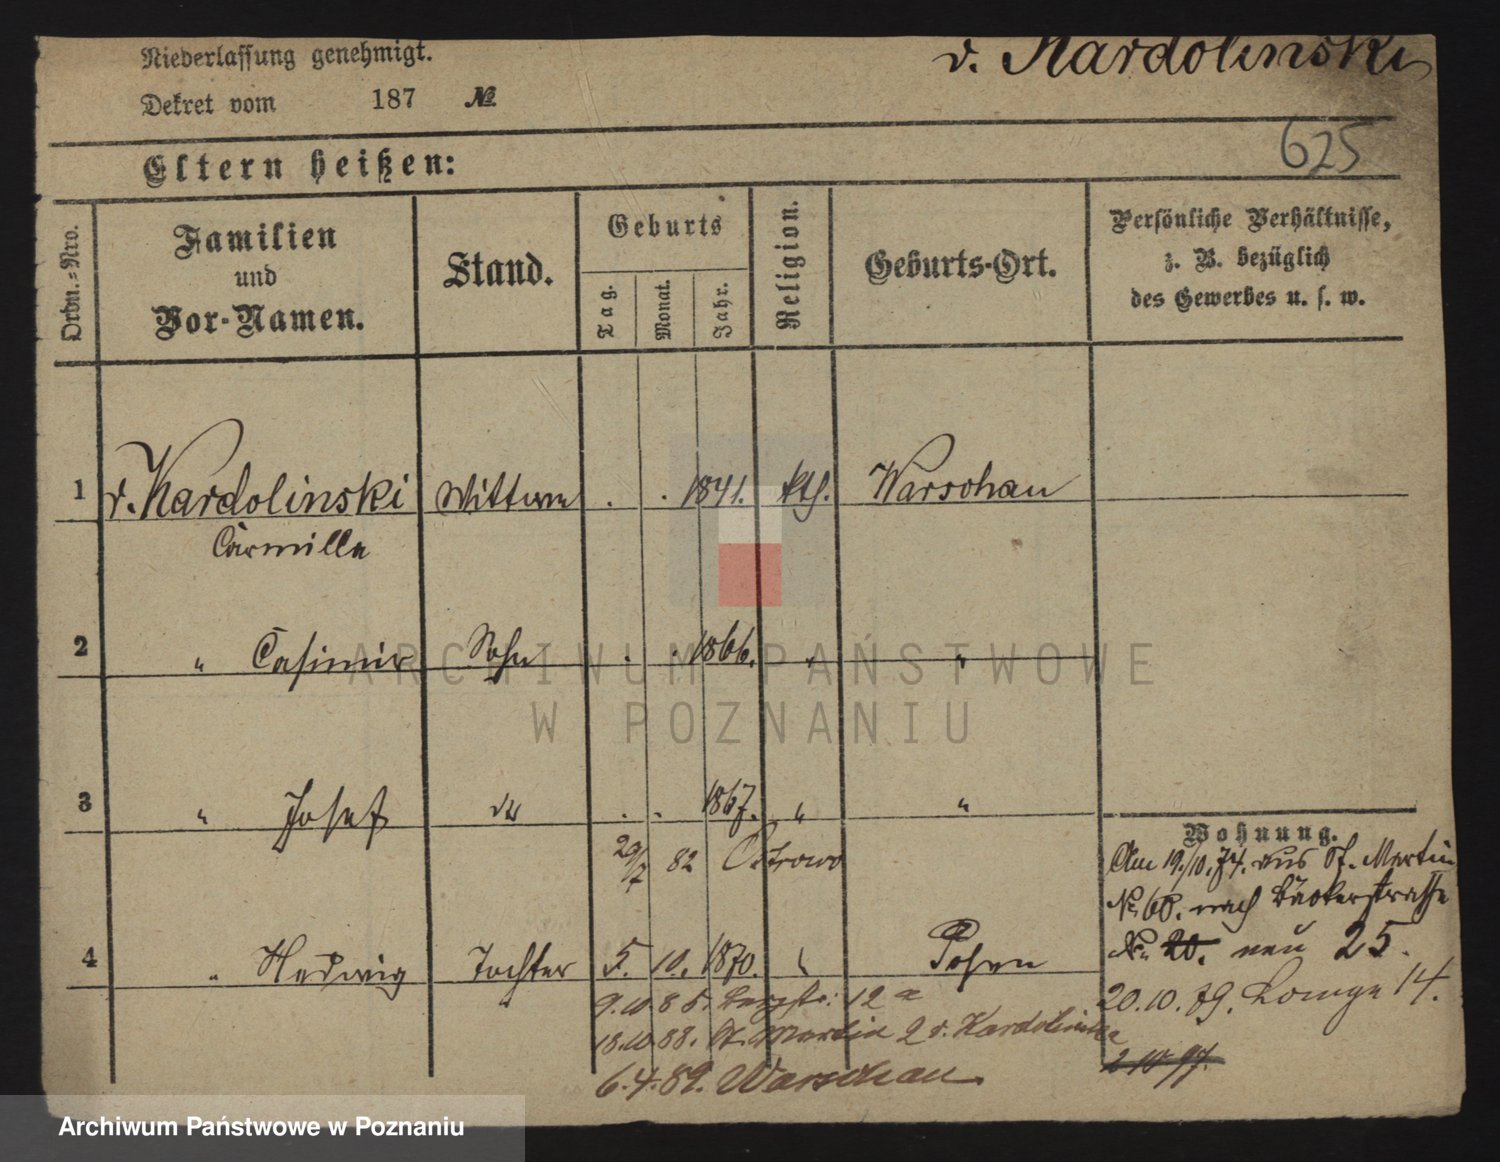 Niederlassung genehmigt.
v. Kardolinski
Dekret vom 187 №
625
Eltern heißen:
Ordn.-Nro.
Familien
und
Vor-Namen.
Stand.
Geburts
Tag.
Monat.
Jahr.
Religion.
Geburts-Ort.
Persönliche Verhältnisse,
z. B. bezüglich
des Gewerbes u. s. w.
1 v. Kardolinski Wittwe . . 1841. kth. Warschau
Carmilla
2 " Casimir Sohn . . 1866. " "
3 " Josef do . . 1867. " "
29/7 82 Ostrowo
Wohnung.
Am 19./10.74. aus St. Martin
№ 68. nach Bäckerstrasse
4 " Hedwig Tochter 5. 10. 1870. " Posen
№ 20. neu 25.
9.10.85. Bergstr: 12a
20.10.79. Lange 14.
18.10.88. St. Martin 2 v. Kardolinska
2.10.97.
6.4.89. Warschau.
ARCHIWUM PAŃSTWOWE
W POZNANIU
Archiwum Państwowe w Poznaniu